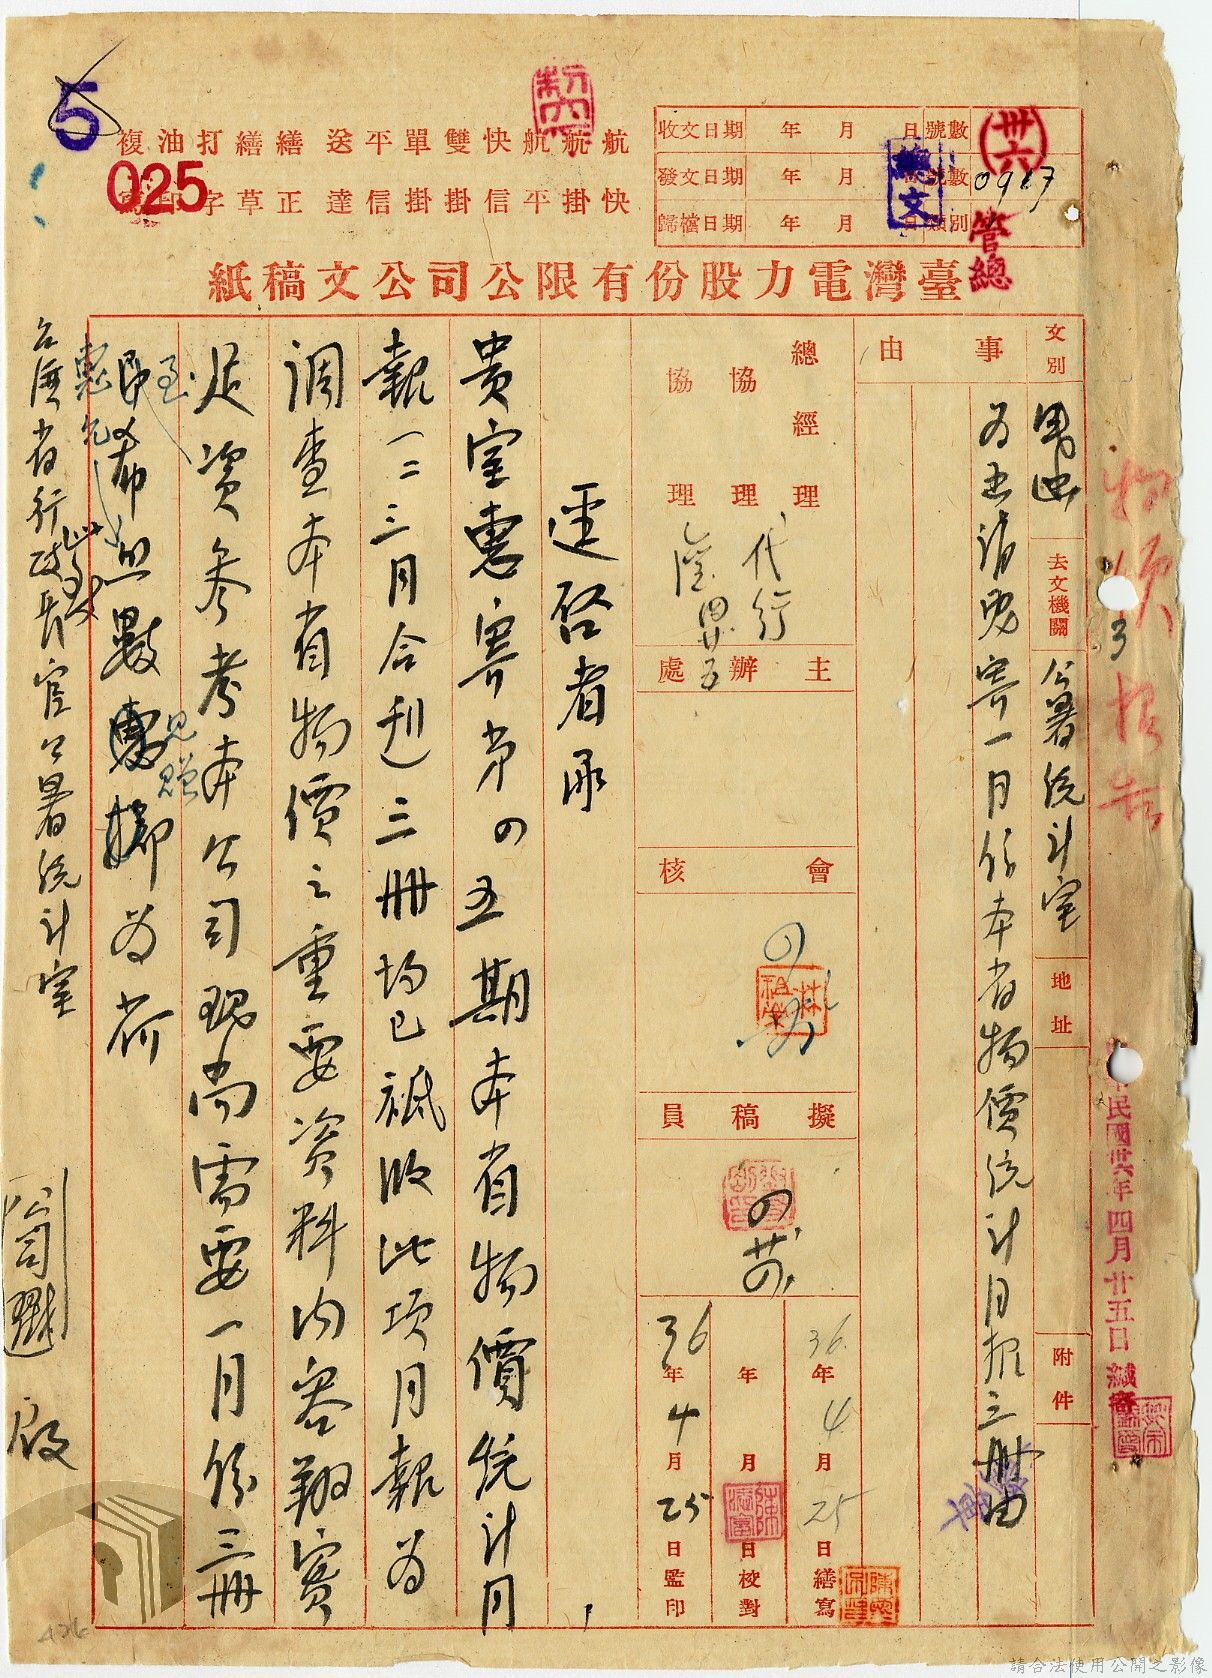 5
025
制內
航航航快雙單平送繕繕打油複
快掛平信掛掛信達正草字印寫
收文日期 年 月 日 號數
發文日期 年 月 號數 0917
歸檔日期 年 月 日 類別
卅六
總文
管總
臺灣電力股份有限公司公文稿紙
文別 男函 去文機關 公署統計室 地址 附件
事由
為函請惠寄一月份本省物價統計月報三冊由
總經理 代行
協理
協理
主辦處
會核
擬稿員
36年4月25日繕寫
年 月 日校對
36年4月25日監印
逕啓者承
貴室惠寄第四五期本省物價統計月
報一二三月合刊三冊均已祗收此項月報為
調查本省物價之重要資料內容翔實
足資參考本公司現尚需要一月份三冊
至希
惠允
照數
見贈
為荷
此致
台灣省行政長官公署統計室
公司戳 啟
物價報告
3
中華民國卅六年四月廿五日 繕寄
請合法使用公開之影像